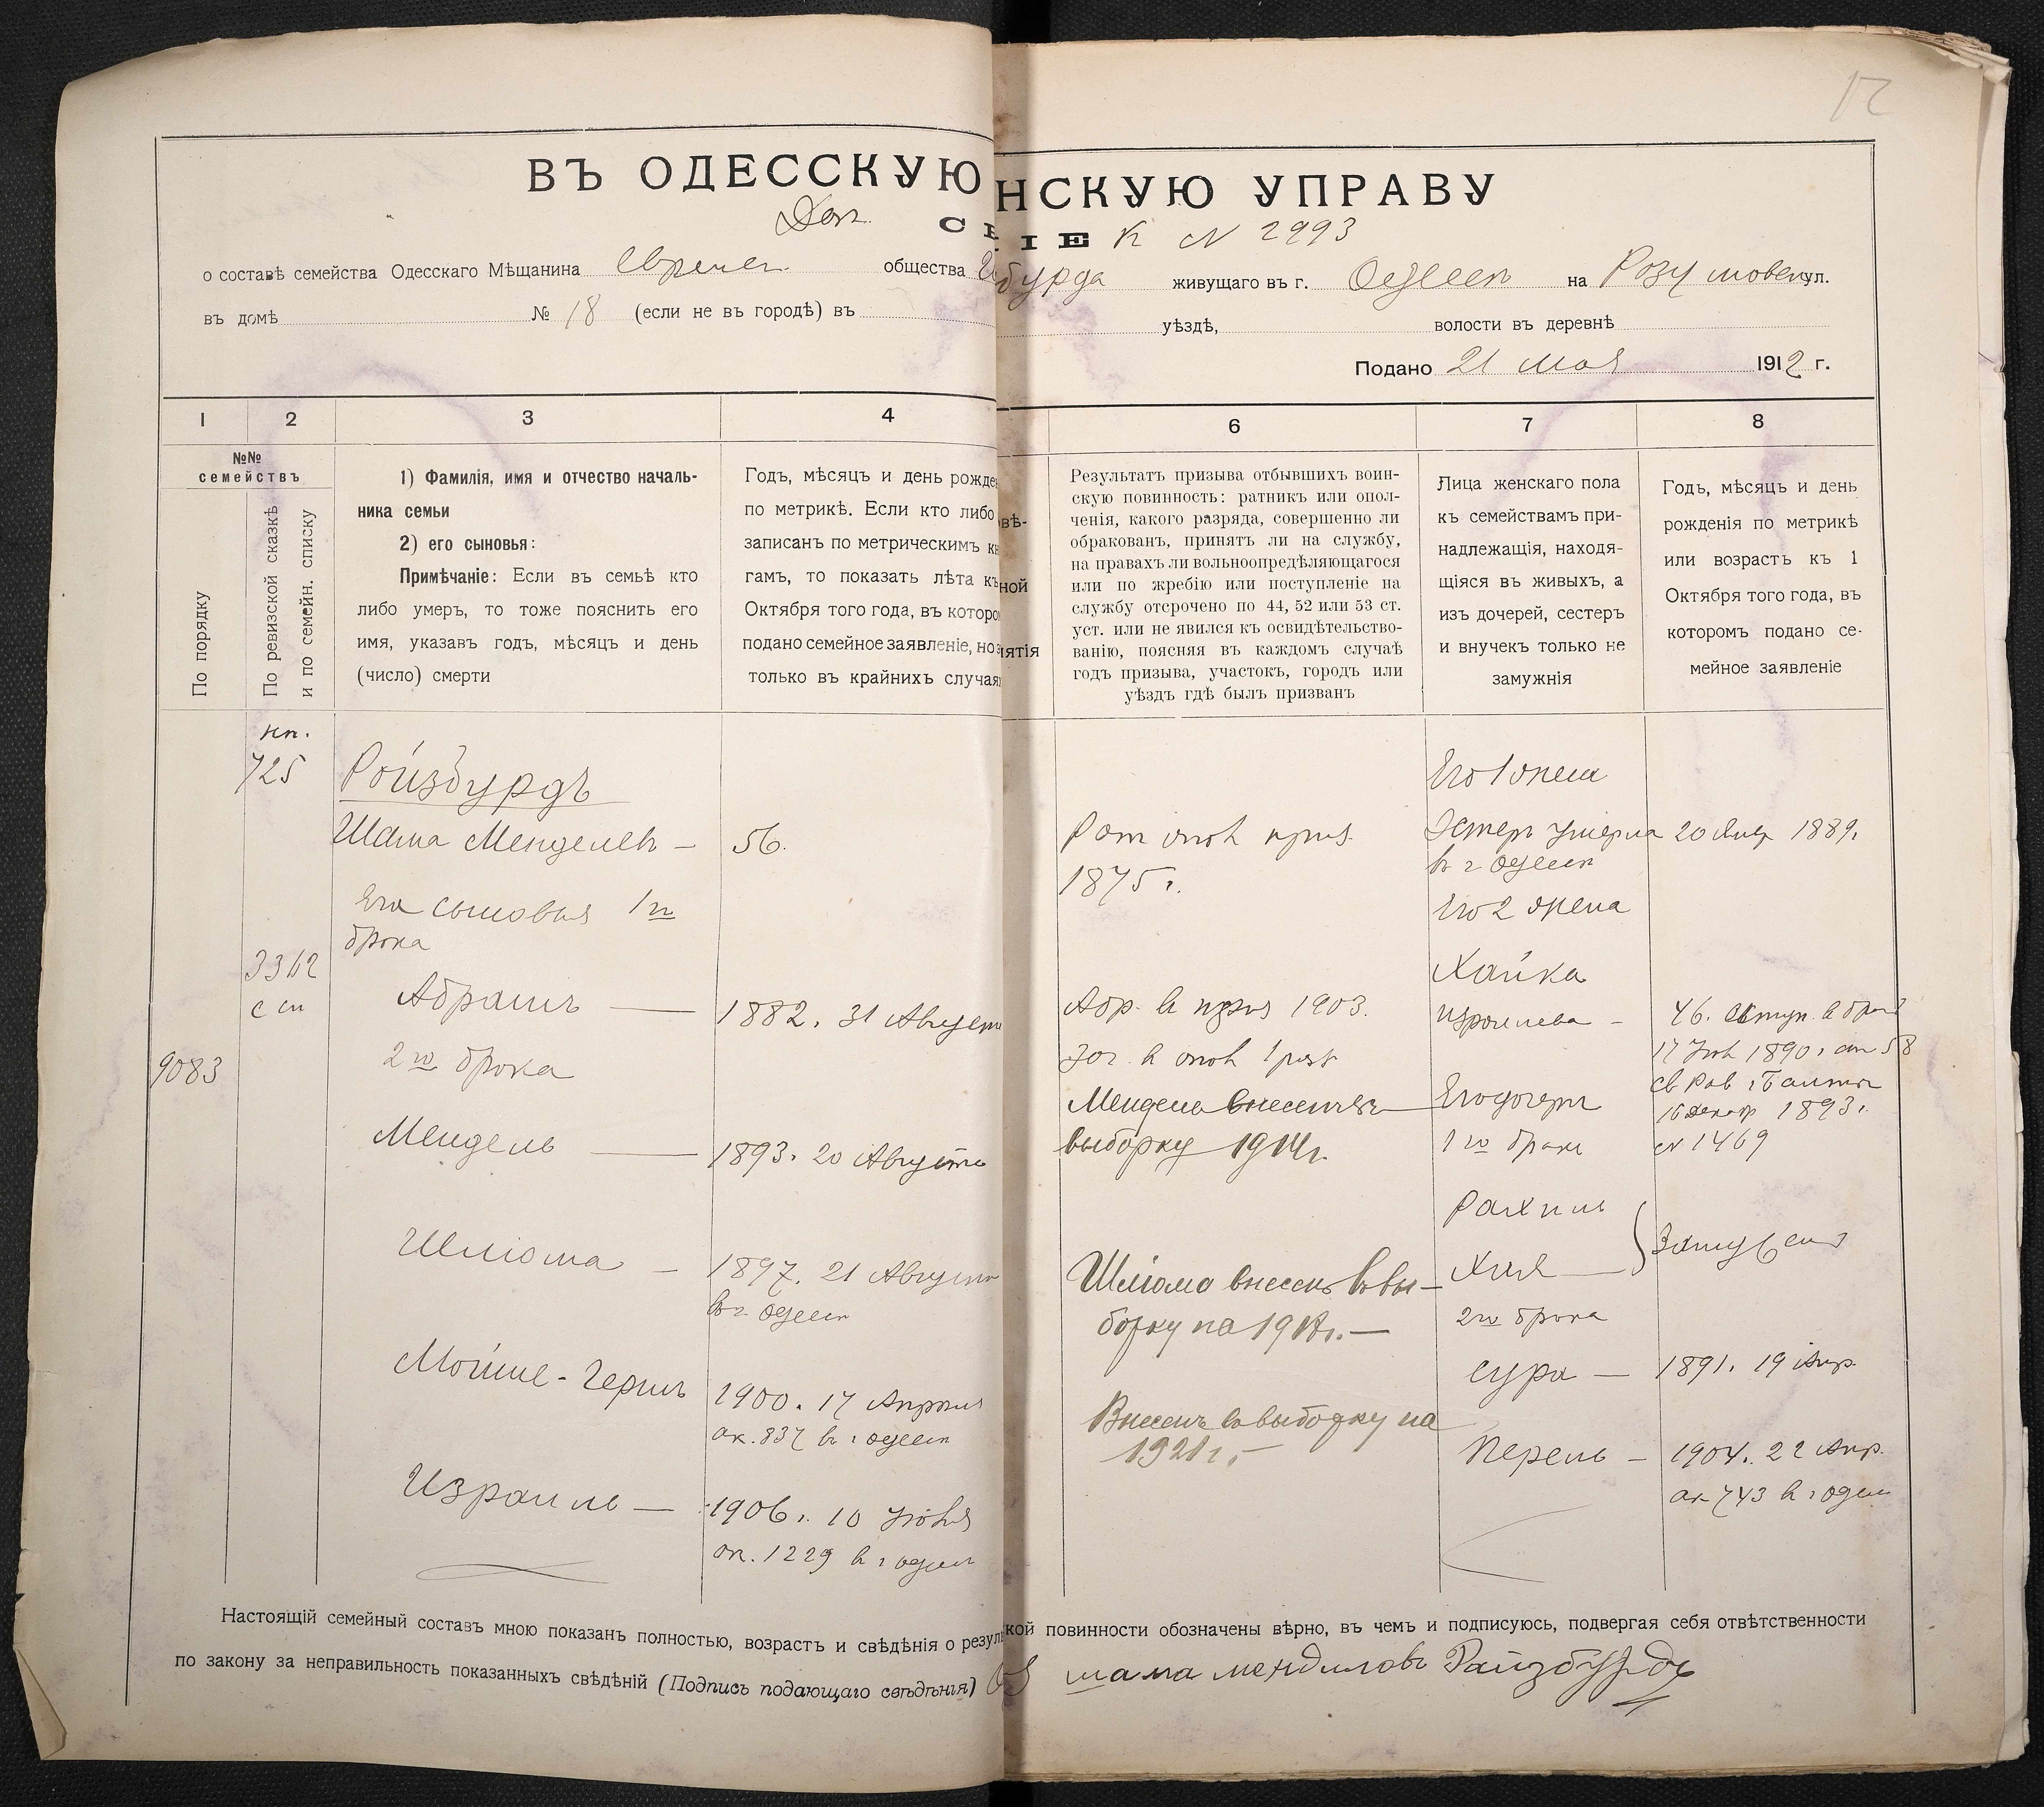 17
ВЪ ОДЕССКУЮ
НСКУЮ УПРАВУ
Доп.
К № 2993
о составѣ семейства Одесскаго Мѣщанина
общества
бурда живущаго въ г. Одессѣ на ул.
въ домѣ № 18 (если не въ городѣ) въ
уѣздѣ, волости въ деревнѣ
Подано 21 мая 1912 г.
1 2 3 4
6 7 8
№№
семействъ
По порядку
По ревизской сказкѣ
и по семейн. списку
1) Фамилія, имя и отчество началь-
ника семьи
2) его сыновья:
Примѣчаніе: Если въ семьѣ кто
либо умеръ, то тоже пояснить его
имя, указавъ годъ, мѣсяцъ и день
(число) смерти
Годъ, мѣсяцъ и день рожде
по метрикѣ. Если кто либо
записанъ по метрическимъ кн
гамъ, то показать лѣта къ
Октября того года, въ которо
подано семейное заявленіе, но
только въ крайнихъ случая
вѣ-
ной
ятія
Результатъ призыва отбывшихъ воин-
скую повинность: ратникъ или опол-
ченія, какого разряда, совершенно ли
обракованъ, принятъ ли на службу,
на правахъ ли вольноопредѣляющагося
или по жребію или поступленіе на
службу отсрочено по 44, 52 или 53 ст.
уст. или не явился къ освидѣтельство-
ванію, поясняя въ каждомъ случаѣ
годъ призыва, участокъ, городъ или
уѣздъ гдѣ былъ призванъ
Лица женскаго пола
къ семействамъ при-
надлежащія, находя-
щіяся въ живыхъ, а
изъ дочерей, сестеръ
и внучекъ только не
замужнія
Годъ, мѣсяцъ и день
рожденія по метрикѣ
или возрастъ къ 1
Октября того года, въ
которомъ подано се-
мейное заявленіе
кп.
725
Ройзбурдъ
Шама Менделевъ — 56.
Его сыновья 1го
брака
3362
Абрамъ — 1882. 31 Августа
9083
2го брака
Мендель — 1893. 20 Августа
Шліома — 1897. 21 Августа
в г. Одессѣ
Мойше-Герш 1900. 17 Апреля
ак. 837 в г Одессѣ
Израиль — 1906. 10 Іюня
ак. 1229 в г Одессѣ
Рат опол приз.
1875 г.
Абр. в приз 1903.
Зач. в опол 1 раз
Мендель внесенъ въ
выборку 1914г.
Шліома внесенъ въ вы-
борку на 1918г. —
Внесенъ въ выборку на
1921г. —
Его 1 жена
Эстеръ умерла 20 Янв 1889.
в г Одессѣ
Его 2 жена
Хайка
Израилева — 46. вступ. в бракъ
1890.
16 Декабр 1893.
№ 1469
Его дочери
1го брака
Рахиль
Хая — Замужем
2го брака
Сура — 1891. 19 Апр.
Перель — 1904. 22 Апр.
ак 743 в г Одес
Настоящій семейный составъ мною показанъ полностью, возрастъ и свѣдѣнія о резуль
кой повинности обозначены вѣрно, въ чемъ и подписуюсь, подвергая себя отвѣтственности
по закону за неправильность показанныхъ свѣдѣній (Подпись подающаго свѣдѣнія)
шама мендиловъ Райзбурдъ